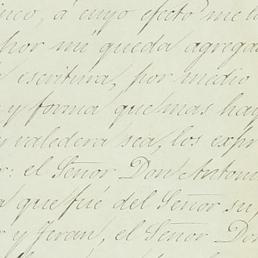 inco, á cuyo efecto me
por mí queda agrega
escritura, por medio
y forma que mas hay
valedera sea, los expr
r: el Señor Don Antoni
a que fué del Señor su
r y Jeran, el Señor Don